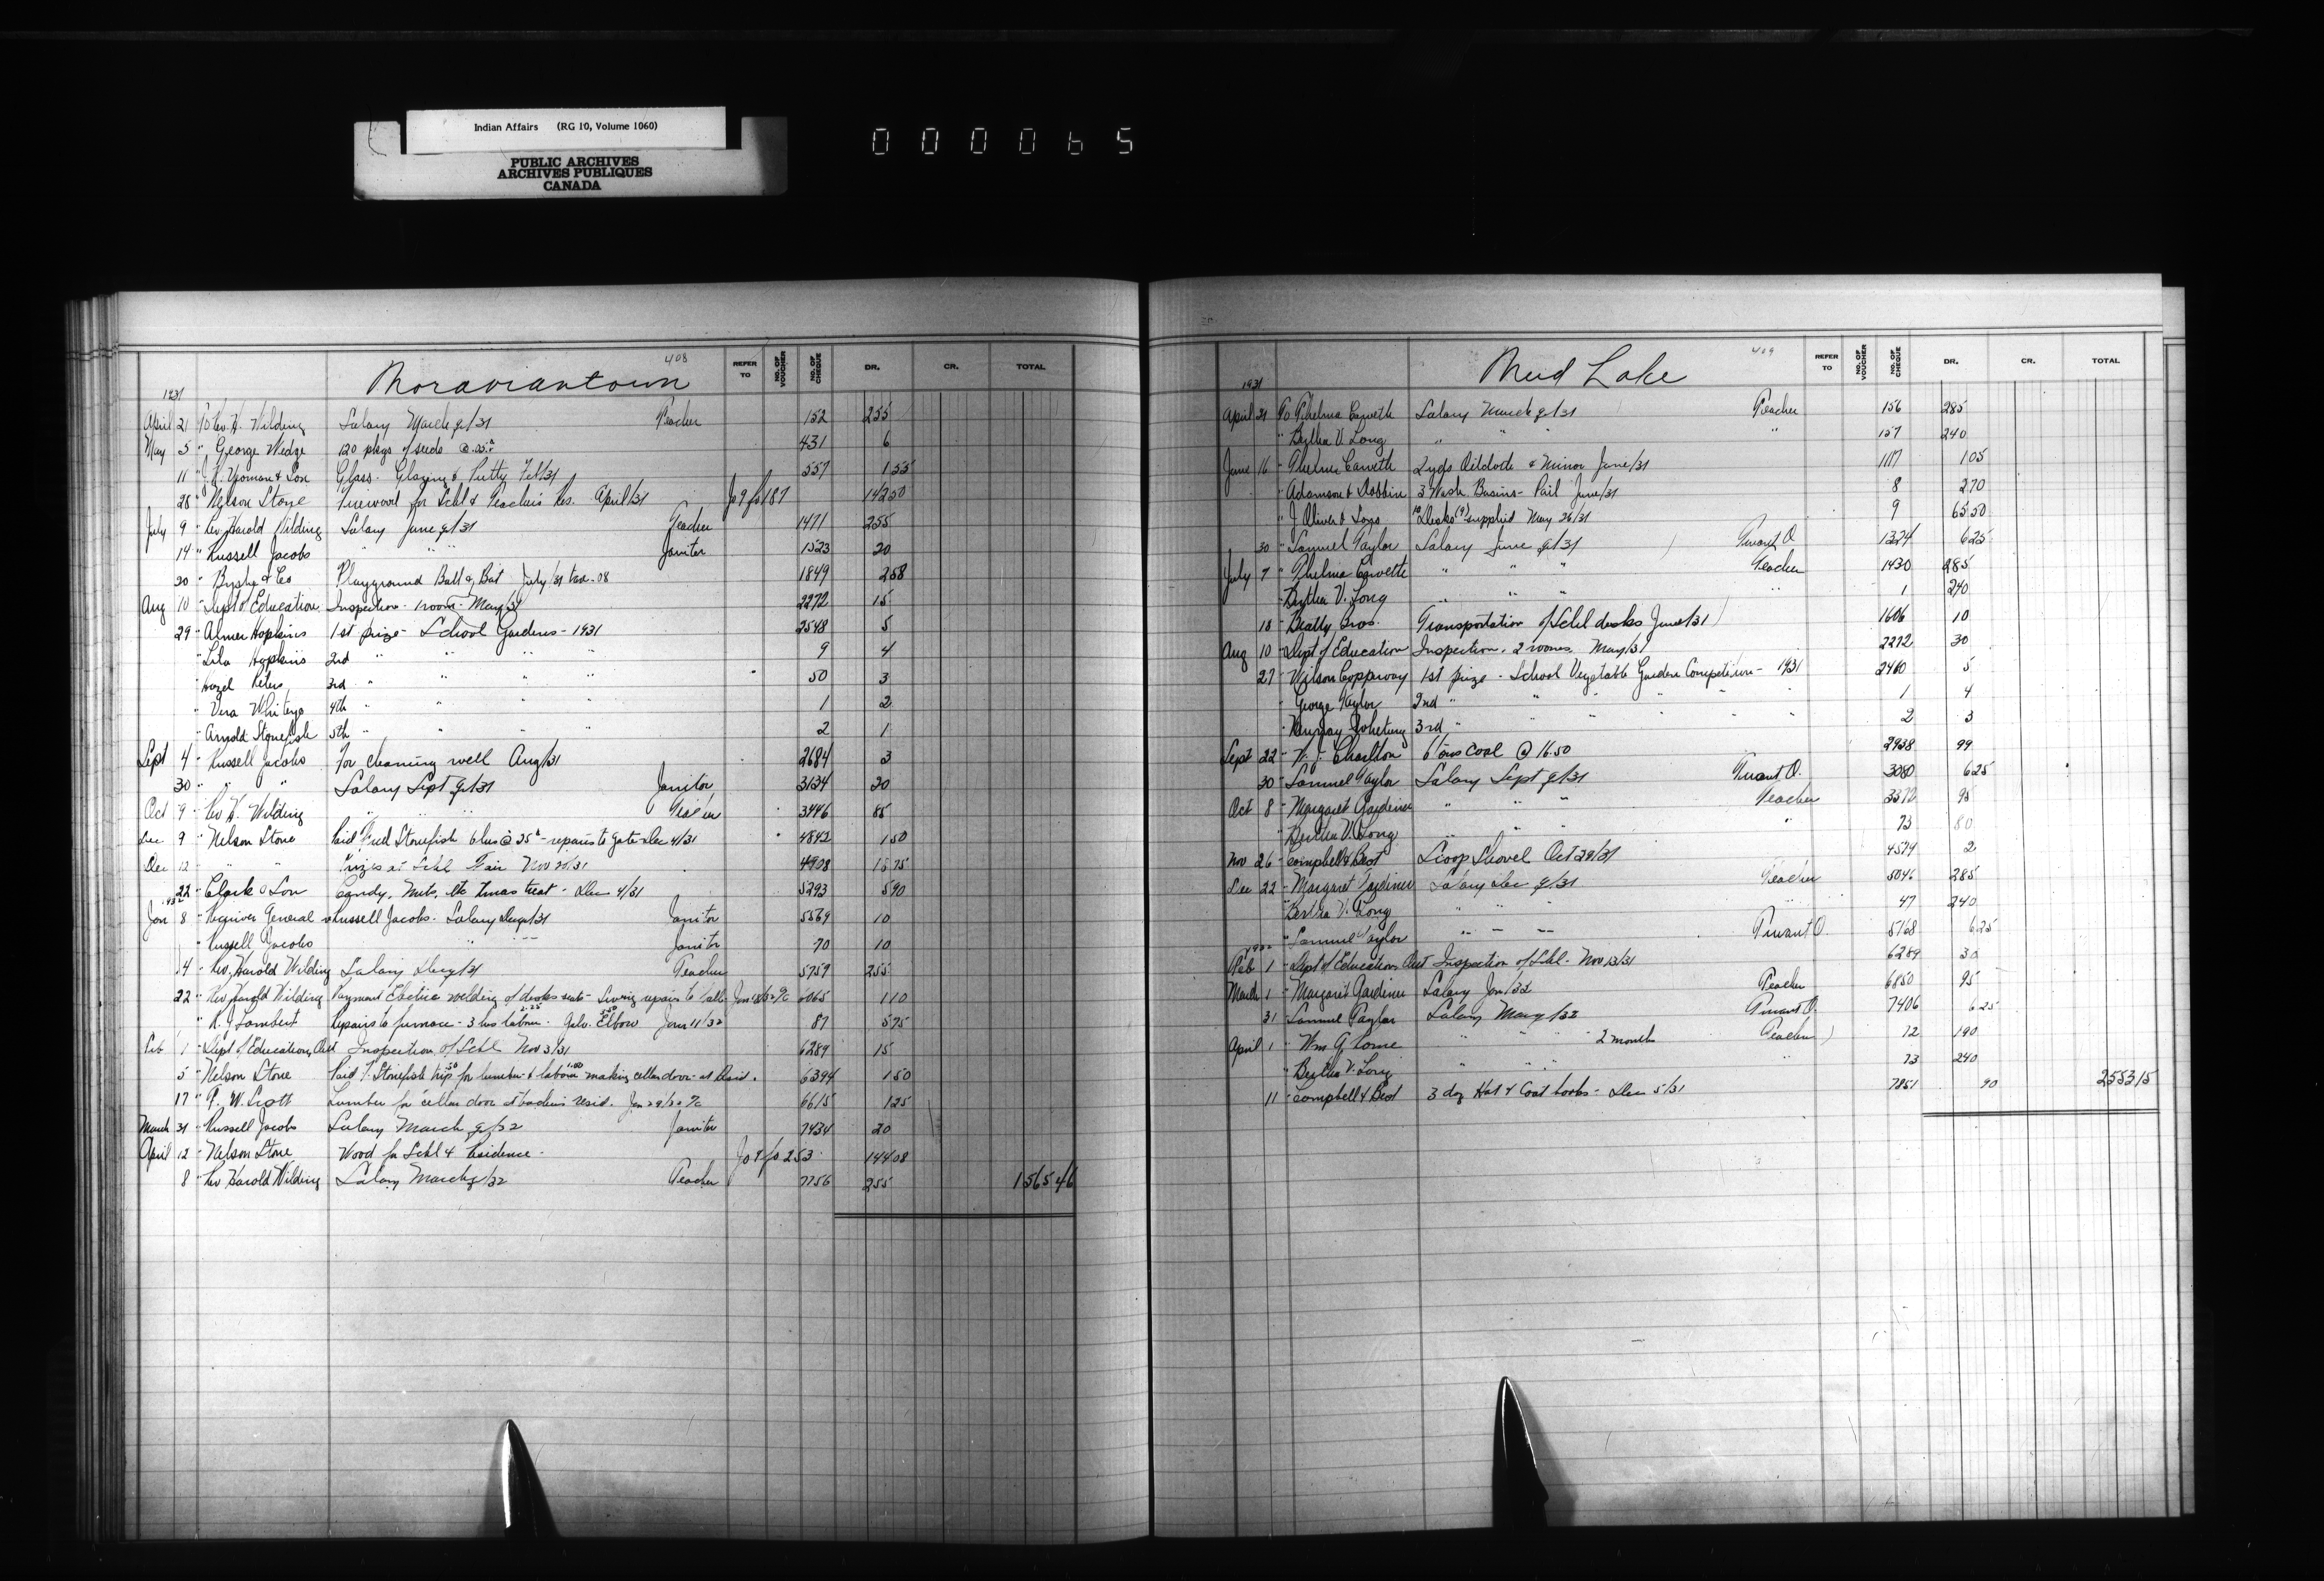 Indian Affairs (RG 10, Volume 1060)
PUBLIC ARCHIVES
ARCHIVES PUBLIQUES
CANADA
000065
408
Moraviantown
REFER TO NO. OF VOUCHER NO. OF CHEQUE DR. CR. TOTAL
1931
April 21 To Rev. H. Wilding Salary March q/31 Teacher 152 255
May 5 " George Wedge 120 pkgs of seeds @ .05 431 6
11 " Yeoman & Son Glass. Glazing & Putty Feb/31 557 1 55
28 " Nelson Stone Firewood for Schl & Teacher's Res. April/31 Jo 9 fo 187 142 50
July 9 " Rev Harold Wilding Salary June q/31 Teacher 1471 255
14 " Russell Jacobs " " " Janitor 1523 20
20 " & Co Playground Ball & Bat July/31 tax .08 1849 2 58
Aug 10 " Dept of Education Inspection - 1 room - May/31 2272 15
29 " Almer Hopkins 1st prize - School Gardens - 1931 2548 5
" Lila Hopkins 2nd " " " " 9 4
" Hazel Peters 3rd " " " " 50 3
" Vera Whiteye 4th " " " " 1 2
" Arnold Stonefish 5th " " " " 2 1
Sept 4 " Russell Jacobs For cleaning well Aug/31 2684 3
30 " " " Salary Sept q/31 Janitor 3134 20
Oct 9 " Rev H. Wilding " " " Teacher 3446 85
Dec 9 " Nelson Stone Paid Fred Stonefish 6 hrs @ 25¢ - repairs to gate Dec 4/31 4842 1 50
Dec 12 " " " Prizes at Schl Fair Nov 20/31 4908 15 75
22 " Clark & Son Candy, Nuts, etc Xmas treat - Dec 4/31 5293 5 90
1932
Jan 8 " Receiver General re Russell Jacobs. Salary Dec q/31 Janitor 5569 10
" Russell Jacobs " " " Janitor 70 10
14 " Rev. Harold Wilding Salary Dec q/31 Teacher 5759 255
22 " Rev Harold Wilding Payment Electric welding of desks seats - repairs to 6065 1 10
" R. J. Lambert Repairs to furnace - 3 hrs labour - Galv. Elbow Jan 11/32 87 5 75
Feb 1 " Dept of Education, Ont Inspection of Schl Nov 3/31 6289 15
5 " Nelson Stone Paid F. Stonefish for lumber & labour making cellar door at Resid. 6394 1 50
17 " W. Scott Lumber for cellar door at teachers resid. 6615 1 25
March 31 " Russell Jacobs Salary March q/32 Janitor 7434 20
April 12 " Nelson Stone Wood for Schl & Residence Jo 9 fo 253 144 08
8 " Rev Harold Wilding Salary March q/32 Teacher 7756 255 1565 46
409
Mud Lake
REFER TO NO. OF VOUCHER NO. OF CHEQUE DR. CR. TOTAL
1931
April 21 To Thelma Carveth Salary March q/31 Teacher 156 285
" Bertha V. Long " " " 157 240
June 16 " Thelma Carveth 2 yds Oilcloth & Mirror June/31 1117 1 05
" Adamson & Dobbin 3 Wash Basins - Pail June/31 8 2 70
" J. Oliver & Sons 10 Desks supplied May 26/31 9 65 50
30 " Samuel Taylor Salary June q/31 Truant O 1324 6 25
July 7 " Thelma Carveth " " " Teacher 1430 285
" Bertha V. Long " " " " 1 240
18 " Beatty Bros. Transportation of Schl desks June/31 1606 10
Aug 10 " Dept of Education Inspection. 2 rooms. May/31 2272 30
27 " Wilson Coppaway 1st prize - School Vegetable Garden Competition - 1931 2460 5
" George Taylor 2nd " " " " " " 1 4
" 3rd " " " " " " 2 3
Sept 22 " Charlton 6 tons coal @ 16.50 2938 99
30 " Samuel Taylor Salary Sept q/31 Truant O. 3080 6 25
Oct 8 " Margaret Gardiner " " " Teacher 3372 95
" Bertha V. Long " " " " 73 80
Nov 26 " Campbell & Best Scoop Shovel Oct 29/31 4579 2
Dec 22 " Margaret Gardiner Salary Dec q/31 Teacher 5046 285
" Bertha V. Long " " " " 47 240
" Samuel Taylor " " " Truant O 5168 6 25
1932
Feb 1 " Dept of Education, Ont Inspection of Schl - Nov 13/31 6289 30
March 1 " Margaret Gardiner Salary Jan/32 Teacher 6850 95
31 " Samuel Taylor Salary Mar q/32 Truant O. 7406 6 25
April 1 " Wm G. Lorne " " " 2 months Teacher 12 190
" Bertha V. Long " " " 13 240
11 " Campbell & Best 3 doz Hat & Coat hooks - Dec 5/31 7851 90 2553 15